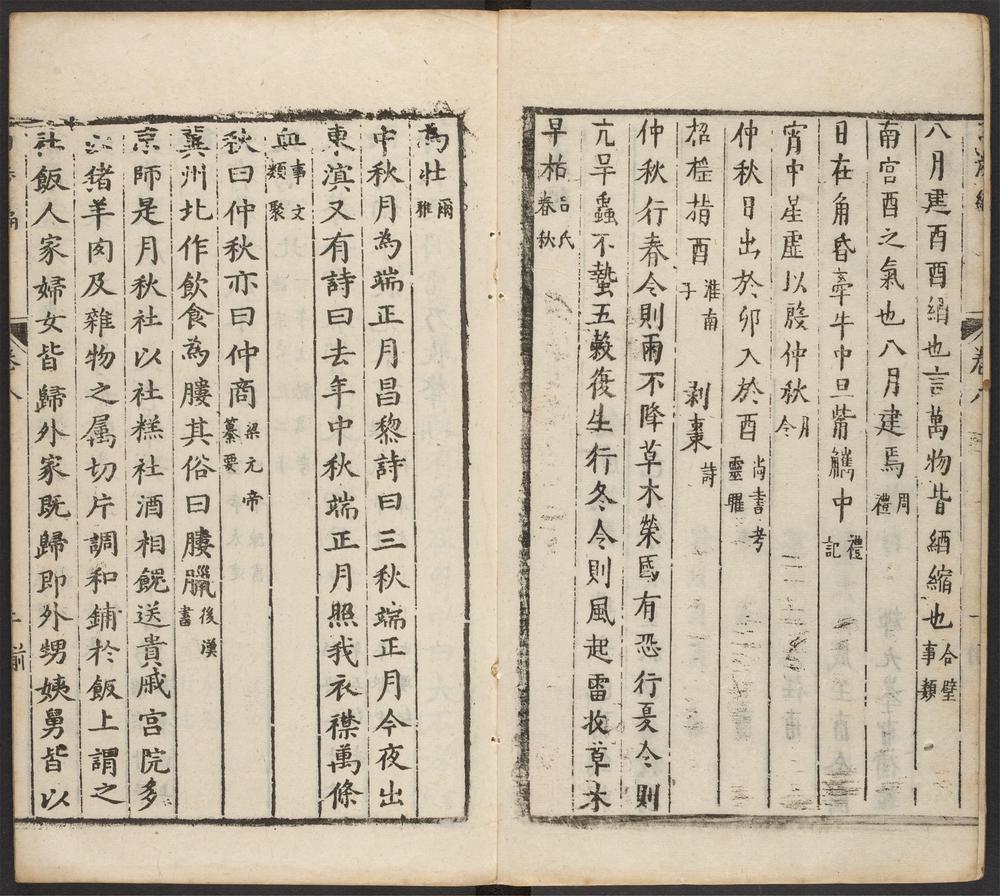 八月建酉酉緧也言萬物皆緧縮也合壁事類
南宮酉之氣也八月建焉周禮
日在角昏牽牛中旦觜觿中禮記
宵中星虛以殷仲秋月令
仲秋日出於卯入於酉尚書考靈曜
招榣指酉淮南子 剥棗詩
仲秋行春令則雨不降草木榮國有恐行夏令則
亢旱蟲不蟄五穀復生行冬令則風起雷收草木
早枯呂氏春秋
為壯爾雅
中秋月為端正月昌黎詩曰三秋端正月今夜出
東溟又有詩曰去年中秋端正月照我衣襟萬條
血事文類聚
秋曰仲秋亦曰仲商梁元帝纂要
冀州北作飲食為膢其俗曰膢臘後漢書
京師是月秋社以社糕社酒相餽送貴戚宮院多
以猪羊肉及雜物之属切片調和鋪於飯上謂之
社飯人家婦女皆歸外家既歸即外甥姨舅皆以
卷八
卷八